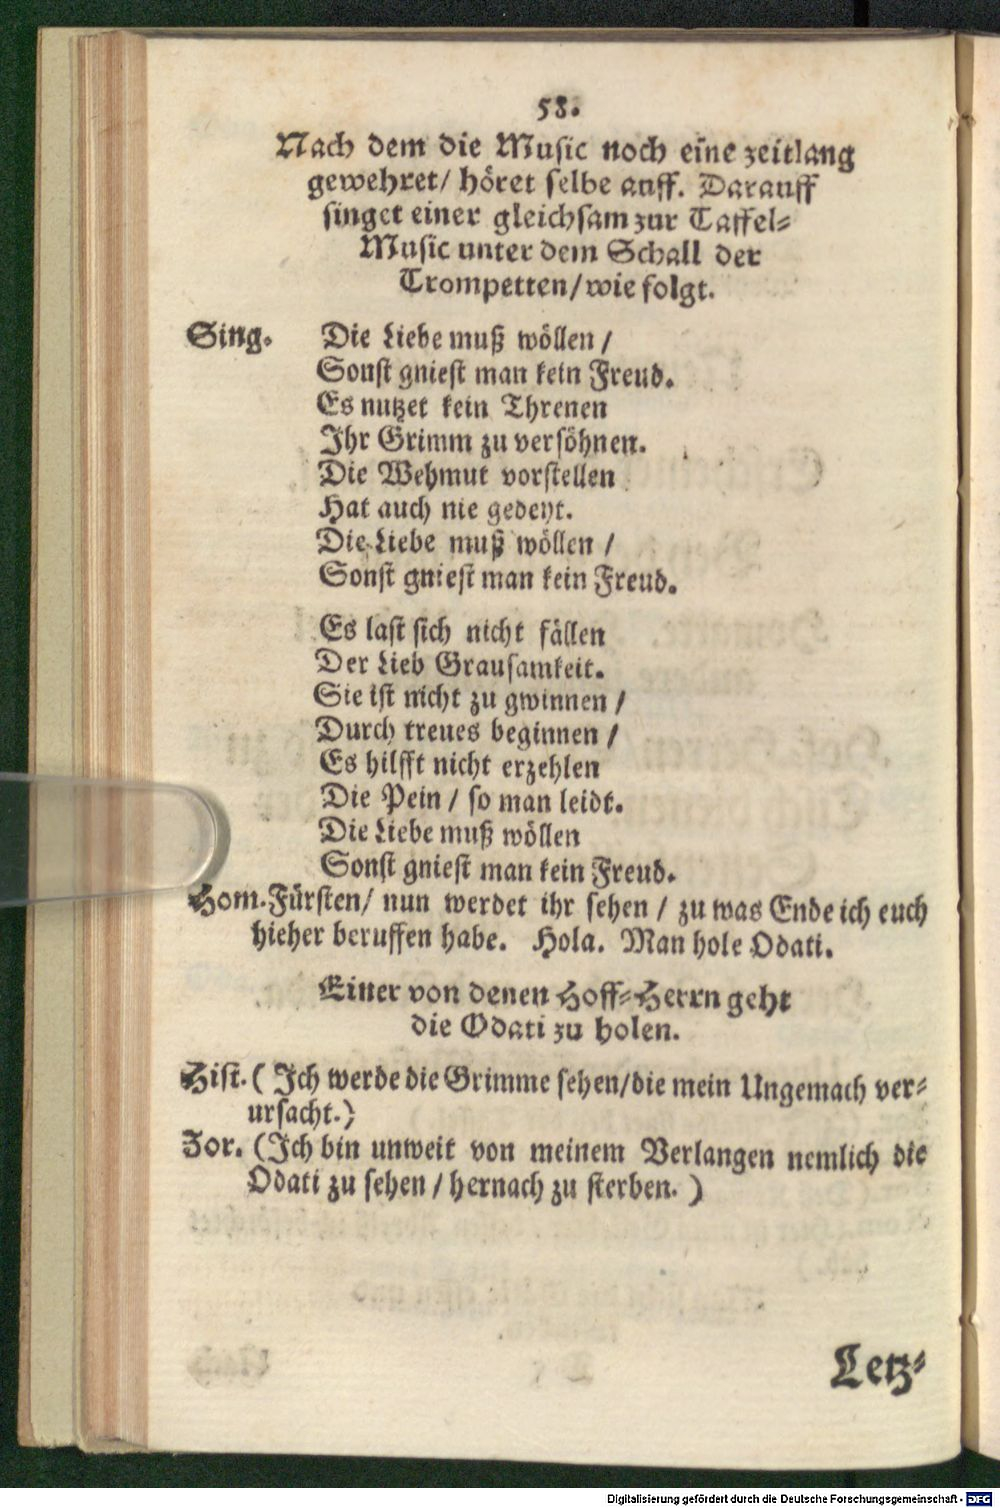 58.
Nach dem die Music noch eine zeitlang
gewehret/ höret selbe auff. Darauff
singet einer gleichsam zur Taffel-
Music unter dem Schall der
Trompetten/ wie folgt.
Sing. Die Liebe muß wöllen /
Sonst gniest man kein Freud.
Es nutzet kein Threnen
Ihr Grimm zu versöhnen.
Die Wehmut vorstellen
Hat auch nie gedeyt.
Die Liebe muß wöllen /
Sonst gniest man kein Freud.
Es last sich nicht fällen
Der Lieb Grausamkeit.
Sie ist nicht zu gwinnen /
Durch treues beginnen /
Es hilfft nicht erzehlen
Die Pein / so man leidt.
Die Liebe muß wöllen
Sonst gniest man kein Freud.
Hom. Fürsten/ nun werdet ihr sehen / zu was Ende ich euch
hieher beruffen habe. Hola. Man hole Odati.
Einer von denen Hoff-Herrn geht
die Odati zu holen.
Hist. ( Ich werde die Grimme sehen/die mein Ungemach ver-
ursacht.)
Zor. (Ich bin unweit von meinem Verlangen nemlich die
Odati zu sehen / hernach zu sterben. )
Letz-
Digitalisierung gefördert durch die Deutsche Forschungsgemeinschaft - DFG